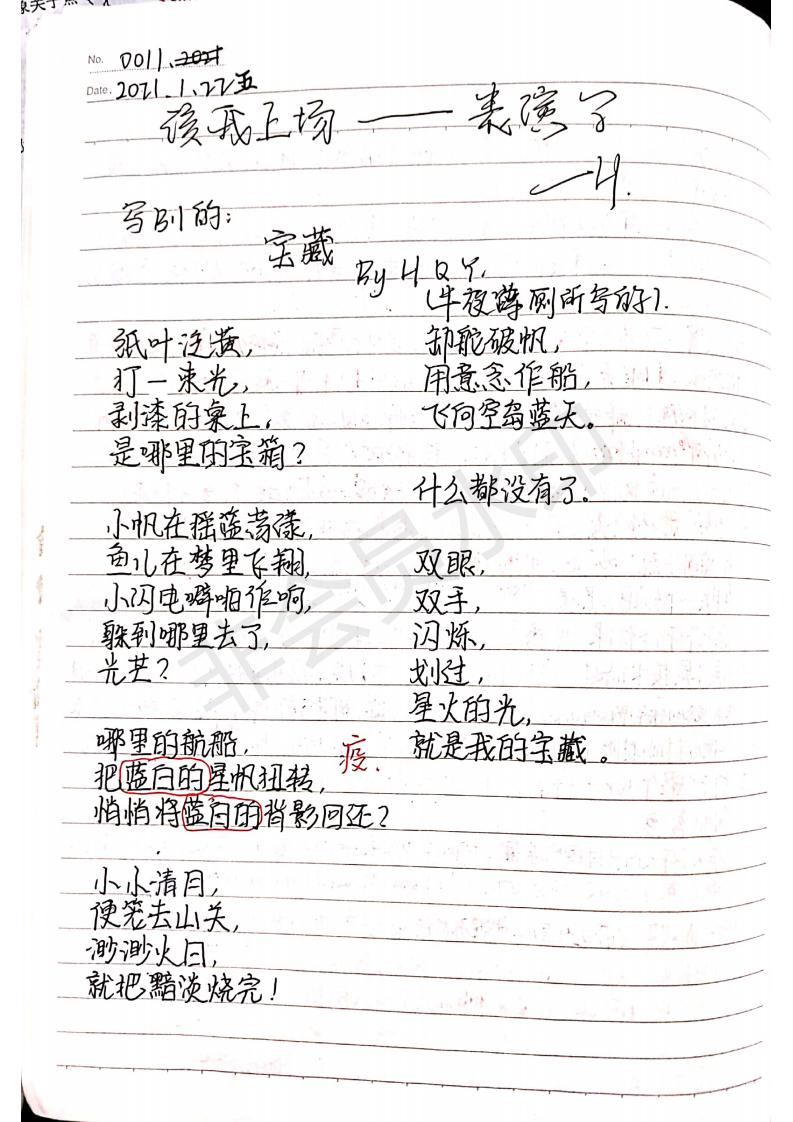 No. 0011.
Date. 2021.1.22五
该我上场——表演了
—H.
写别的:
宝藏
By H Q Y.
(半夜蹲厕所写的).
纸叶泛黄,
打一束光,
剥漆的桌上,
是哪里的宝箱?
小帆在摇篮荡漾,
鱼儿在梦里飞翔,
小闪电噼啪作响,
躲到哪里去了,
光芒?
哪里的航船,
把蓝白的星帆扭转,
悄悄将蓝白的背影回还?
疫.
小小清月,
便笼去山关,
渺渺火日,
就把黯淡烧完!
卸舵破帆,
用意念作船,
飞向空岛蓝天。
什么都没有了。
双眼,
双手,
闪烁,
划过,
星火的光,
就是我的宝藏。
非会员水印